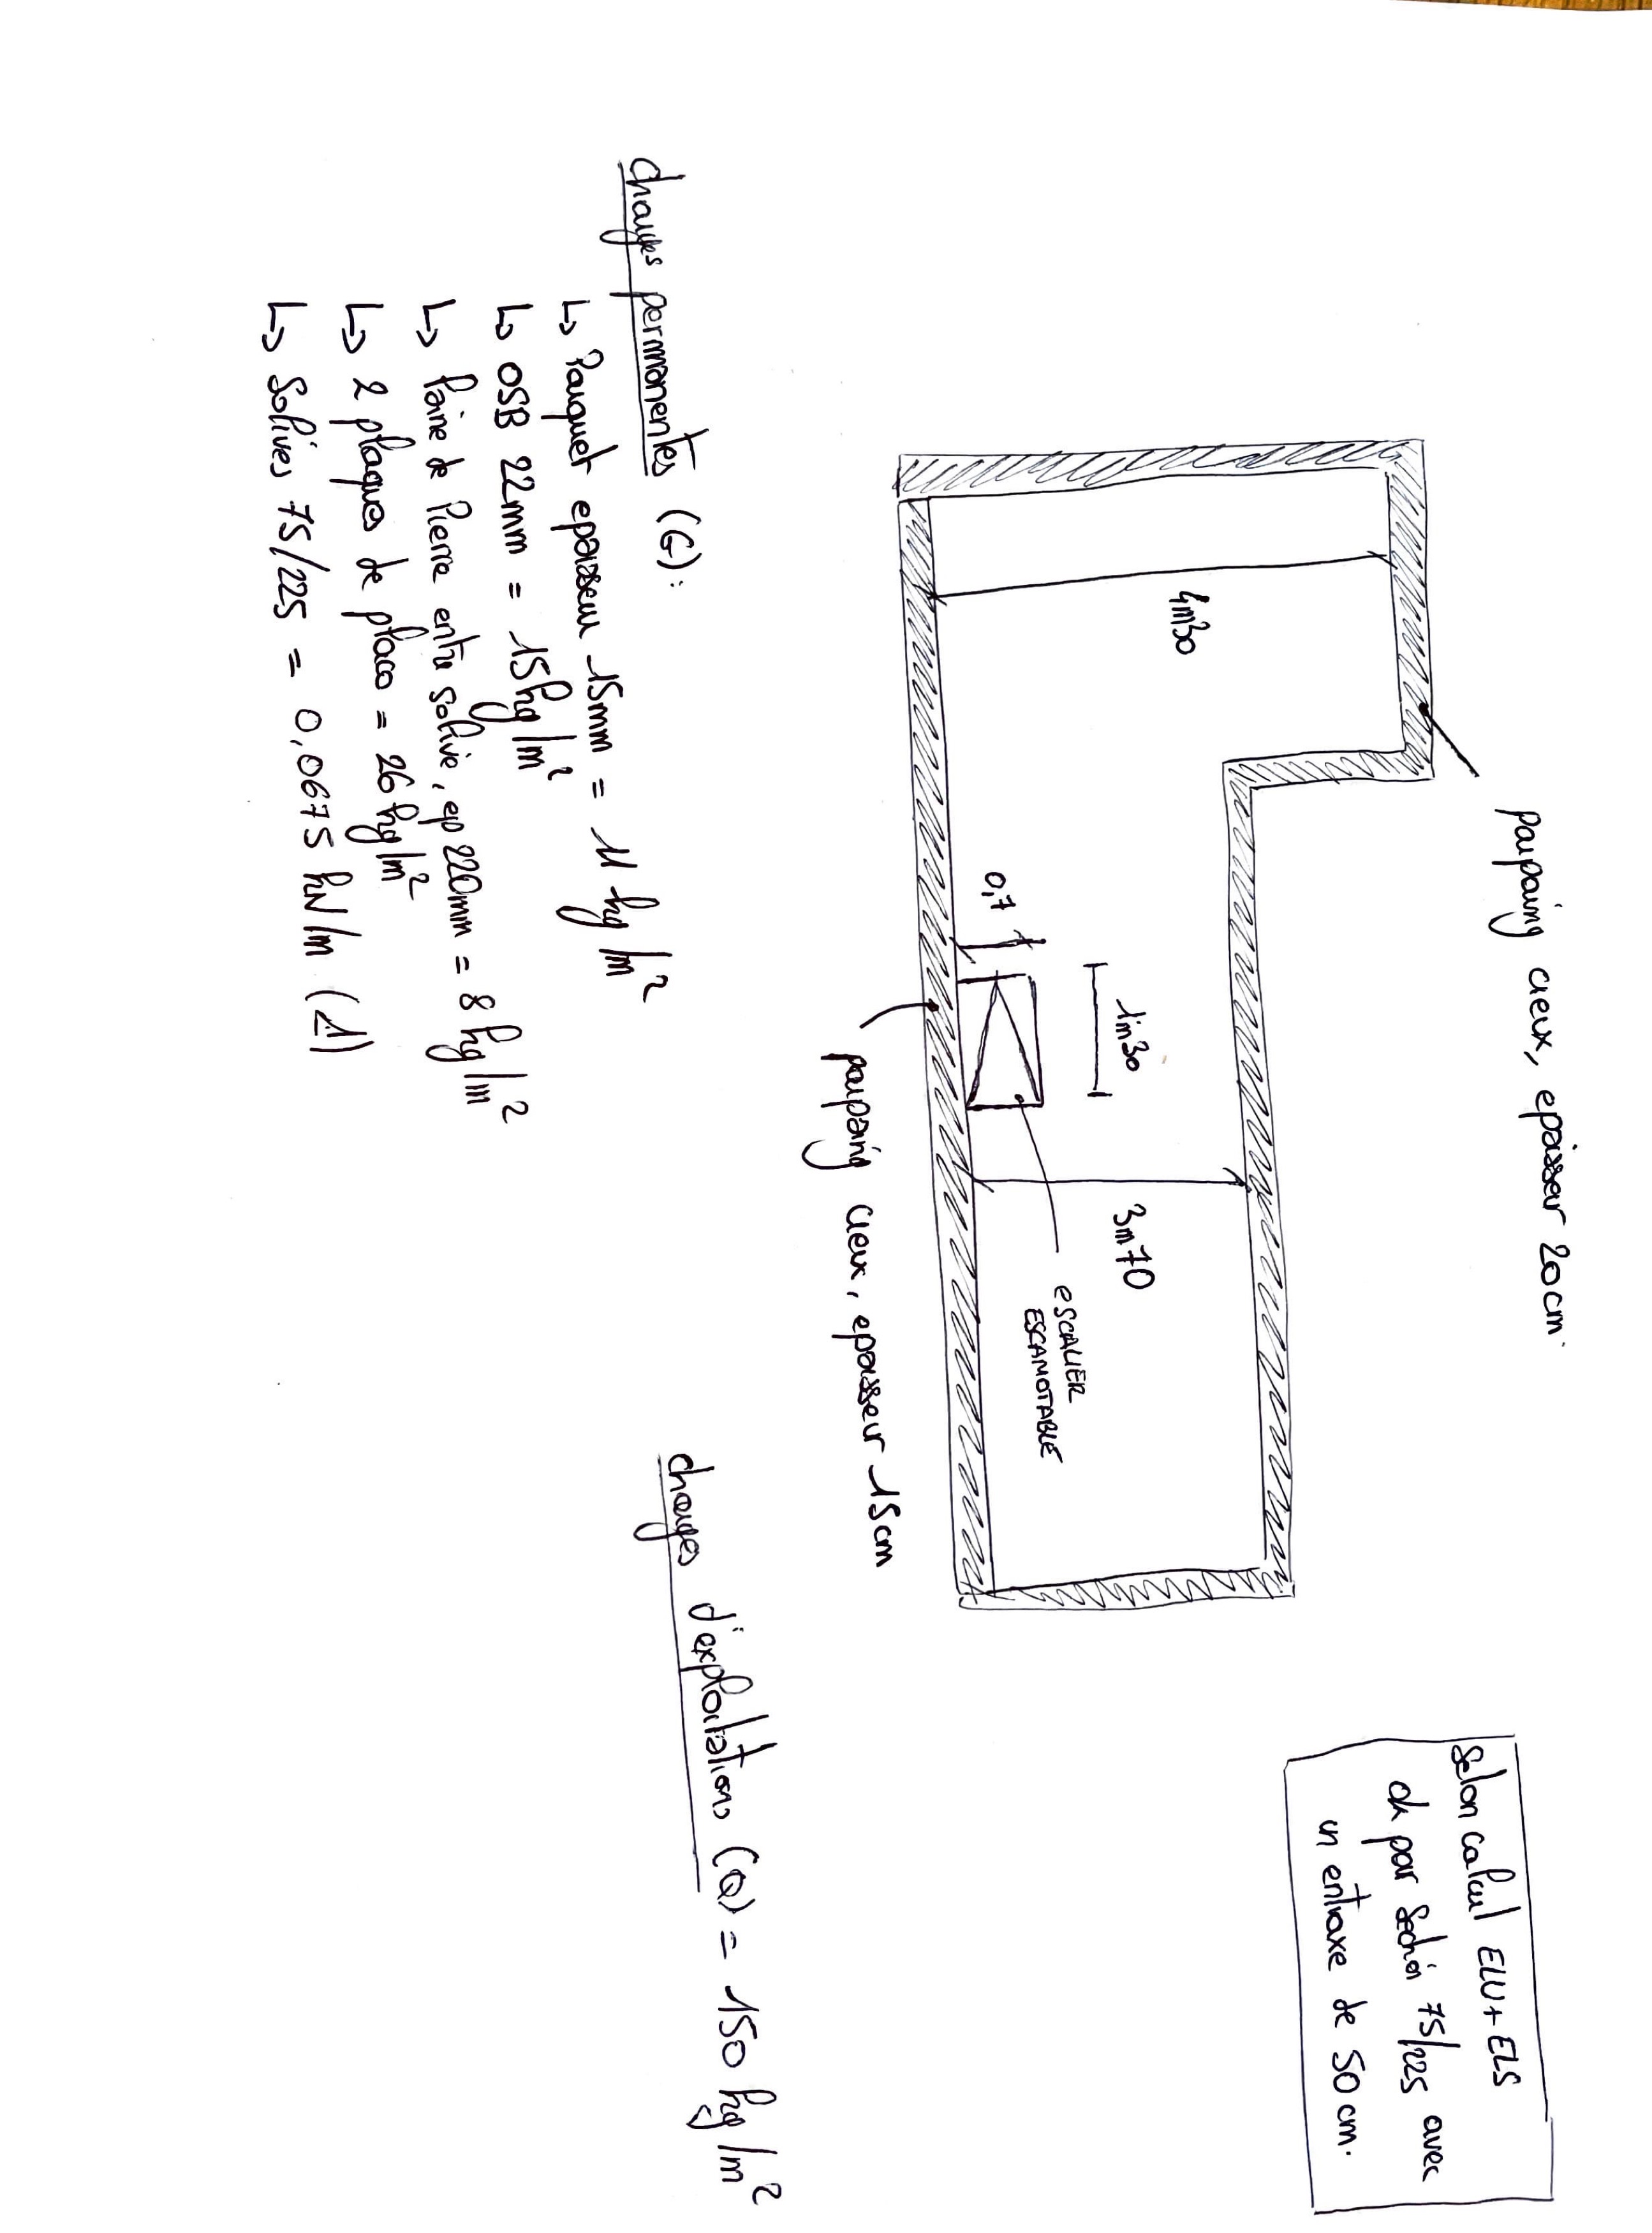 parpaing creux, epaisseur 20cm.
4m30
0,7
1m30
3m70
ESCALIER
ESCAMOTABLE
parpaing creux, epaisseur 15cm
Selon calcul ELU+ELS
ok pour section 75/225 avec
un entraxe de 50 cm.
charges permanentes (G):
↳ Parquet epaisseur 15mm = 11 kg/m²
↳ OSB 22mm = 15kg/m²
↳ laine de Pierre entre solive, ep 220mm = 8 kg/m²
↳ 2 plaques de placo = 26kg/m²
↳ Solives 75/225 = 0,0675 kN/m (1)
charges d'exploitations (Q) = 150 kg/m²